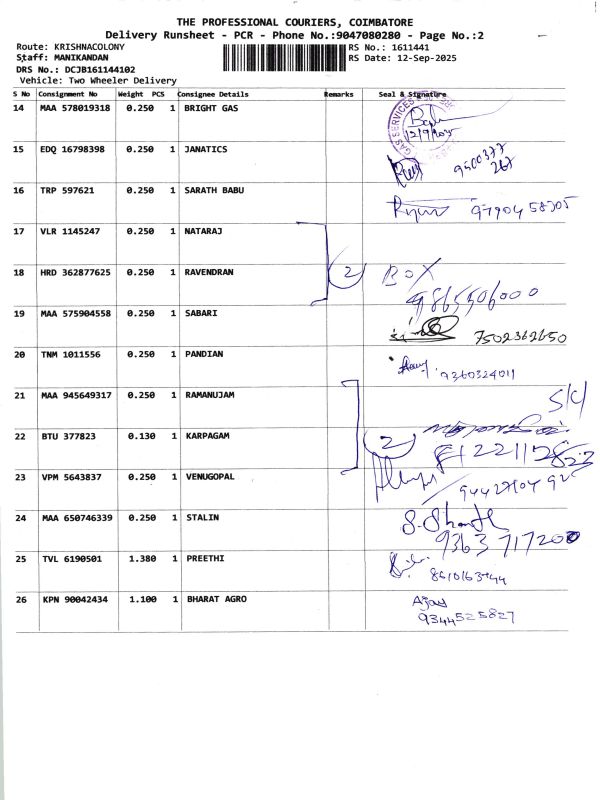 THE PROFESSIONAL COURIERS, COIMBATORE
Delivery Runsheet - PCR - Phone No.:9047080280 - Page No.:2
Route: KRISHNACOLONY RS No.: 1611441
Staff: MANIKANDAN RS Date: 12-Sep-2025
DRS No.: DCJB161144102
Vehicle: Two Wheeler Delivery
S No Consignment No Weight PCS Consignee Details Remarks Seal & Signature
14 MAA 578019318 0.250 1 BRIGHT GAS
GAS SERVICES
15 EDQ 16798398 0.250 1 JANATICS 9500377
267
16 TRP 597621 0.250 1 SARATH BABU
17 VLR 1145247 0.250 1 NATARAJ
18 HRD 362877625 0.250 1 RAVENDRAN 2 BOX
9865506000
19 MAA 575904558 0.250 1 SABARI 7502362650
20 TNM 1011556 0.250 1 PANDIAN 9360324011
21 MAA 945649317 0.250 1 RAMANUJAM
22 BTU 377823 0.130 1 KARPAGAM 2
23 VPM 5643837 0.250 1 VENUGOPAL
24 MAA 650746339 0.250 1 STALIN 9363717200
25 TVL 6190501 1.380 1 PREETHI
26 KPN 90042434 1.100 1 BHARAT AGRO Ajay
9344525827